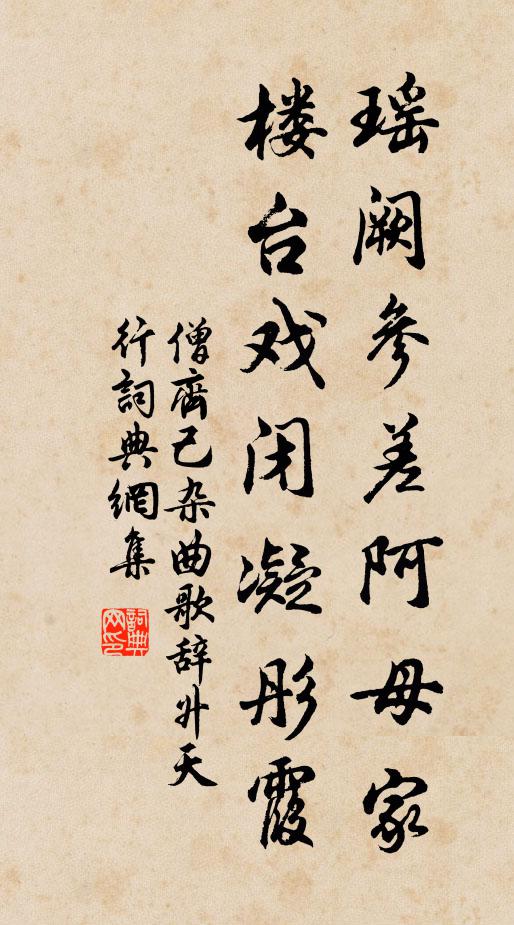 瑶阙参差阿母家
楼台戏闭凝彤霞
僧齊己杂曲歌辞升天
行詞典網集
詞典网印